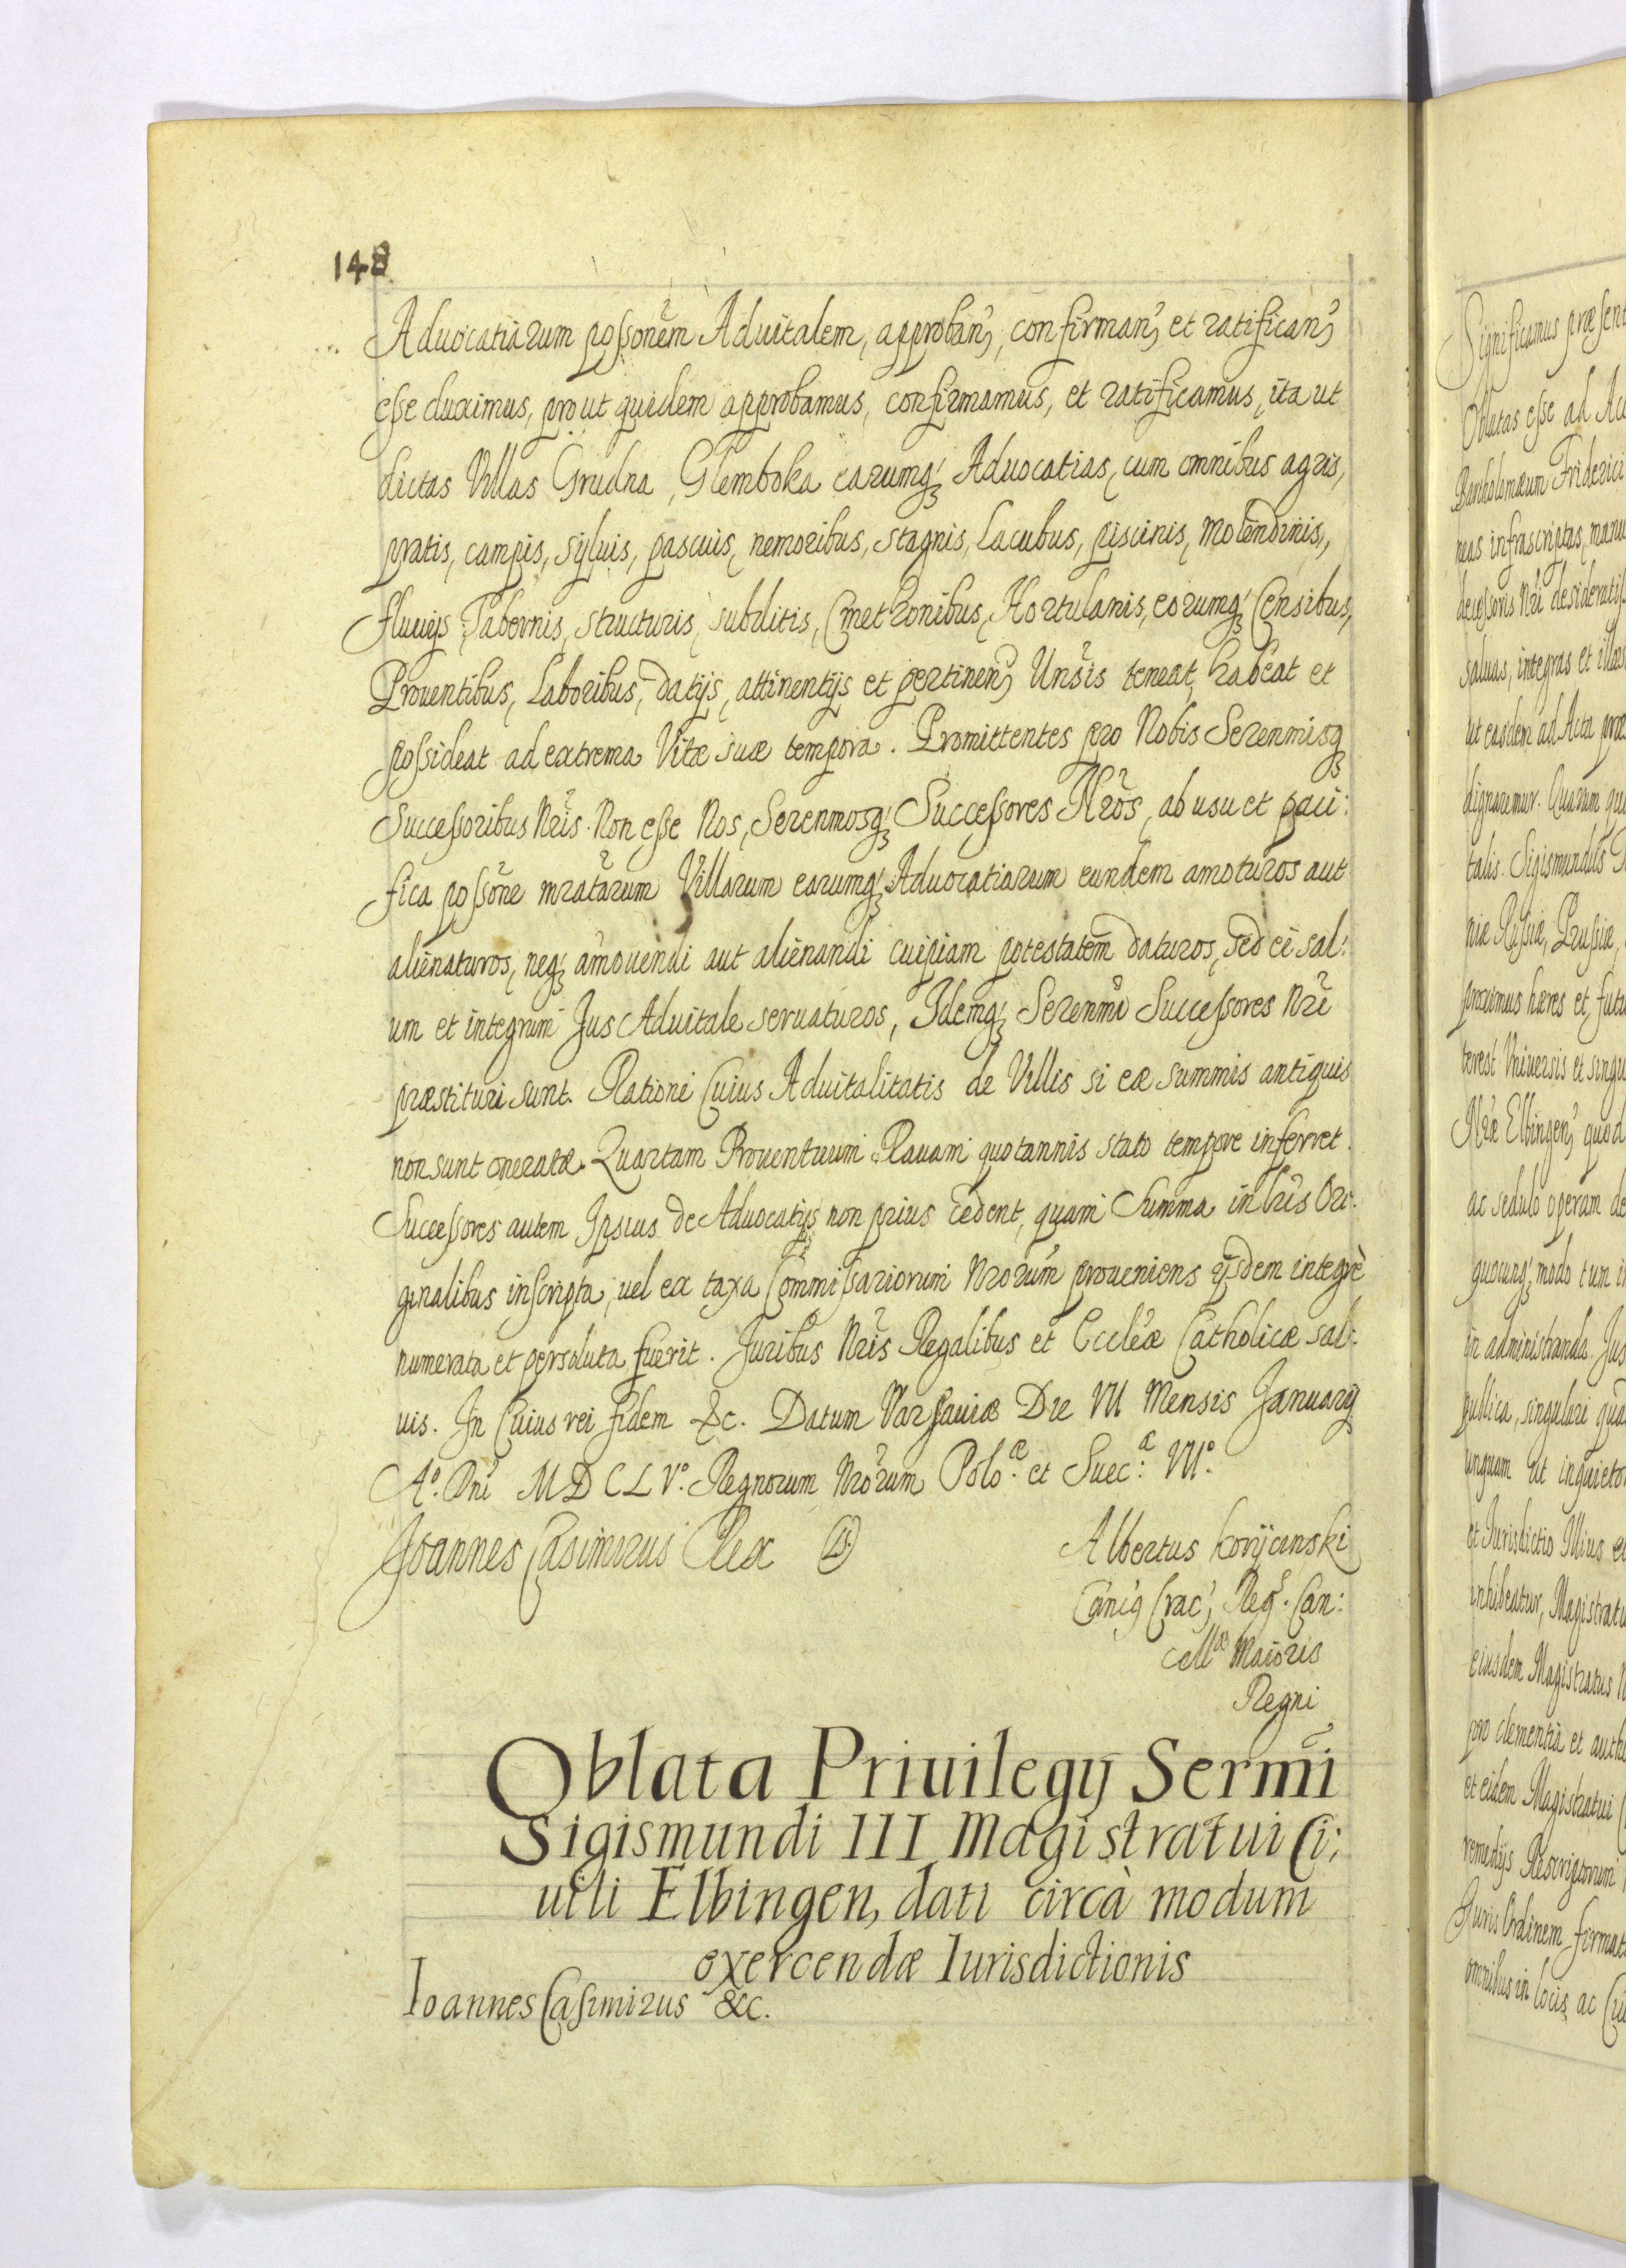 148
Aduocatiarum possonem Aduitalem, approban, confirman, et ratifican,
esse duximus, prout quidem approbamus, confirmamus, et ratificamus, ita ut
dictas Villas Grudna, Glemboka earumq Aduocatias, cum omnibus agris,
pratis, campis, syluis, pascuis, nemoribus, stagnis, Lacubus, piscinis, Molendinis,
fluuijs Tabernis, structuris, subditis, Cmethonibus, Hortulanis, eorumq Censibus,
Prouentibus, Laboribus, datijs, attinentijs et pertinen, Unsis teneat, habeat et
possideat ad extrema Vitæ suæ tempora. Promittentes pro Nobis Serenmisq
Successoribus Nris. Non esse Nos, Serenmosq Successores Nros, ab usu et paci:
fica possone mratarum Villarum earumq Aduocatiarum eundem amoturos aut
alienaturos, neq amouendi aut alienandi cuipiam potestatem daturos, sed ei sal:
um et integrum Jus Aduitale seruaturos, Idemq Serenmi Successores Nri
præstituri sunt. Rationi Cuius Aduitalitatis de Villis si eæ summis antiquis
non sunt oneratæ. Quartam Prouentuum Rauam quotannis stato tempore inferret.
Successores autem Ipsius de Aduocatijs non prius cedent, quam Summa in Lris Ori:
ginalibus inscripta, uel ex taxa Commissariorum Nrorum proueniens ijsdem integrè
numerata et persoluta fuerit. Juribus Nris Regalibus et Eccleæ Catholicæ sal:
uis. In Cuius rei fidem &c. Datum Varsauiæ Die VII Mensis Januarij
Aº. Dni MDCLVº. Regnorum Nrorum Polo.æ et Suec:æ VIIº.
Joannes Casimirus Rex (LS)
Albertus Korycinski
Canig Crac, Reg. Can:
cellæ Maioris
Regni
Oblata Priuilegij Sermi
Sigismundi III Magistratui Ci:
uili Elbingen, dati circà modum
exercendæ Iurisdictionis
Ioannes Casimirus &c.
Significamus præsent
Oblatas esse ad Ac
Bartholomæum Friderici
neas infrascriptas, manu
decessoris Nri desideratis
saluas, integras et illæs
ut easdem ad Acta præ
dignaremur. Quarum qui
talis. Sigismundus
niæ Russiæ, Prussiæ,
proximus hæres et futu
terest Vniuersis et singu
Nræ Elbingen, quod
ac sedulo operam de
quocunq modo tum i
in administranda Jus
publica, singulari qua
unquam ut inquieto
et Jurisdictio Illius e
inhibeatur, Magistratu
eiusdem Magistratus N
pro clementia et auth
et eidem Magistratui
remedijs Rescriptorum
Juris Ordinem format
omnibus in locis ac